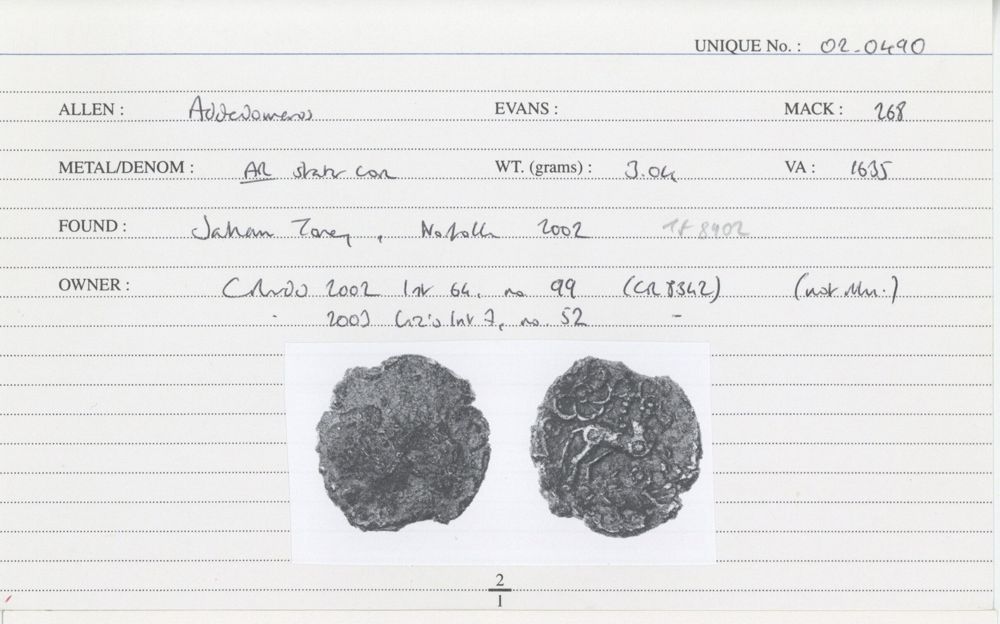 UNIQUE No. : 02-0490
ALLEN : Addedomeros EVANS : MACK : 268
METAL/DENOM : AR stater core WT. (grams) : 3.04 VA : 1635
FOUND : Saham Toney, Norfolk 2002
OWNER : 2002 list 64, no. 99 (CR 8342)
2003 list 7, no. 52 -
2
1